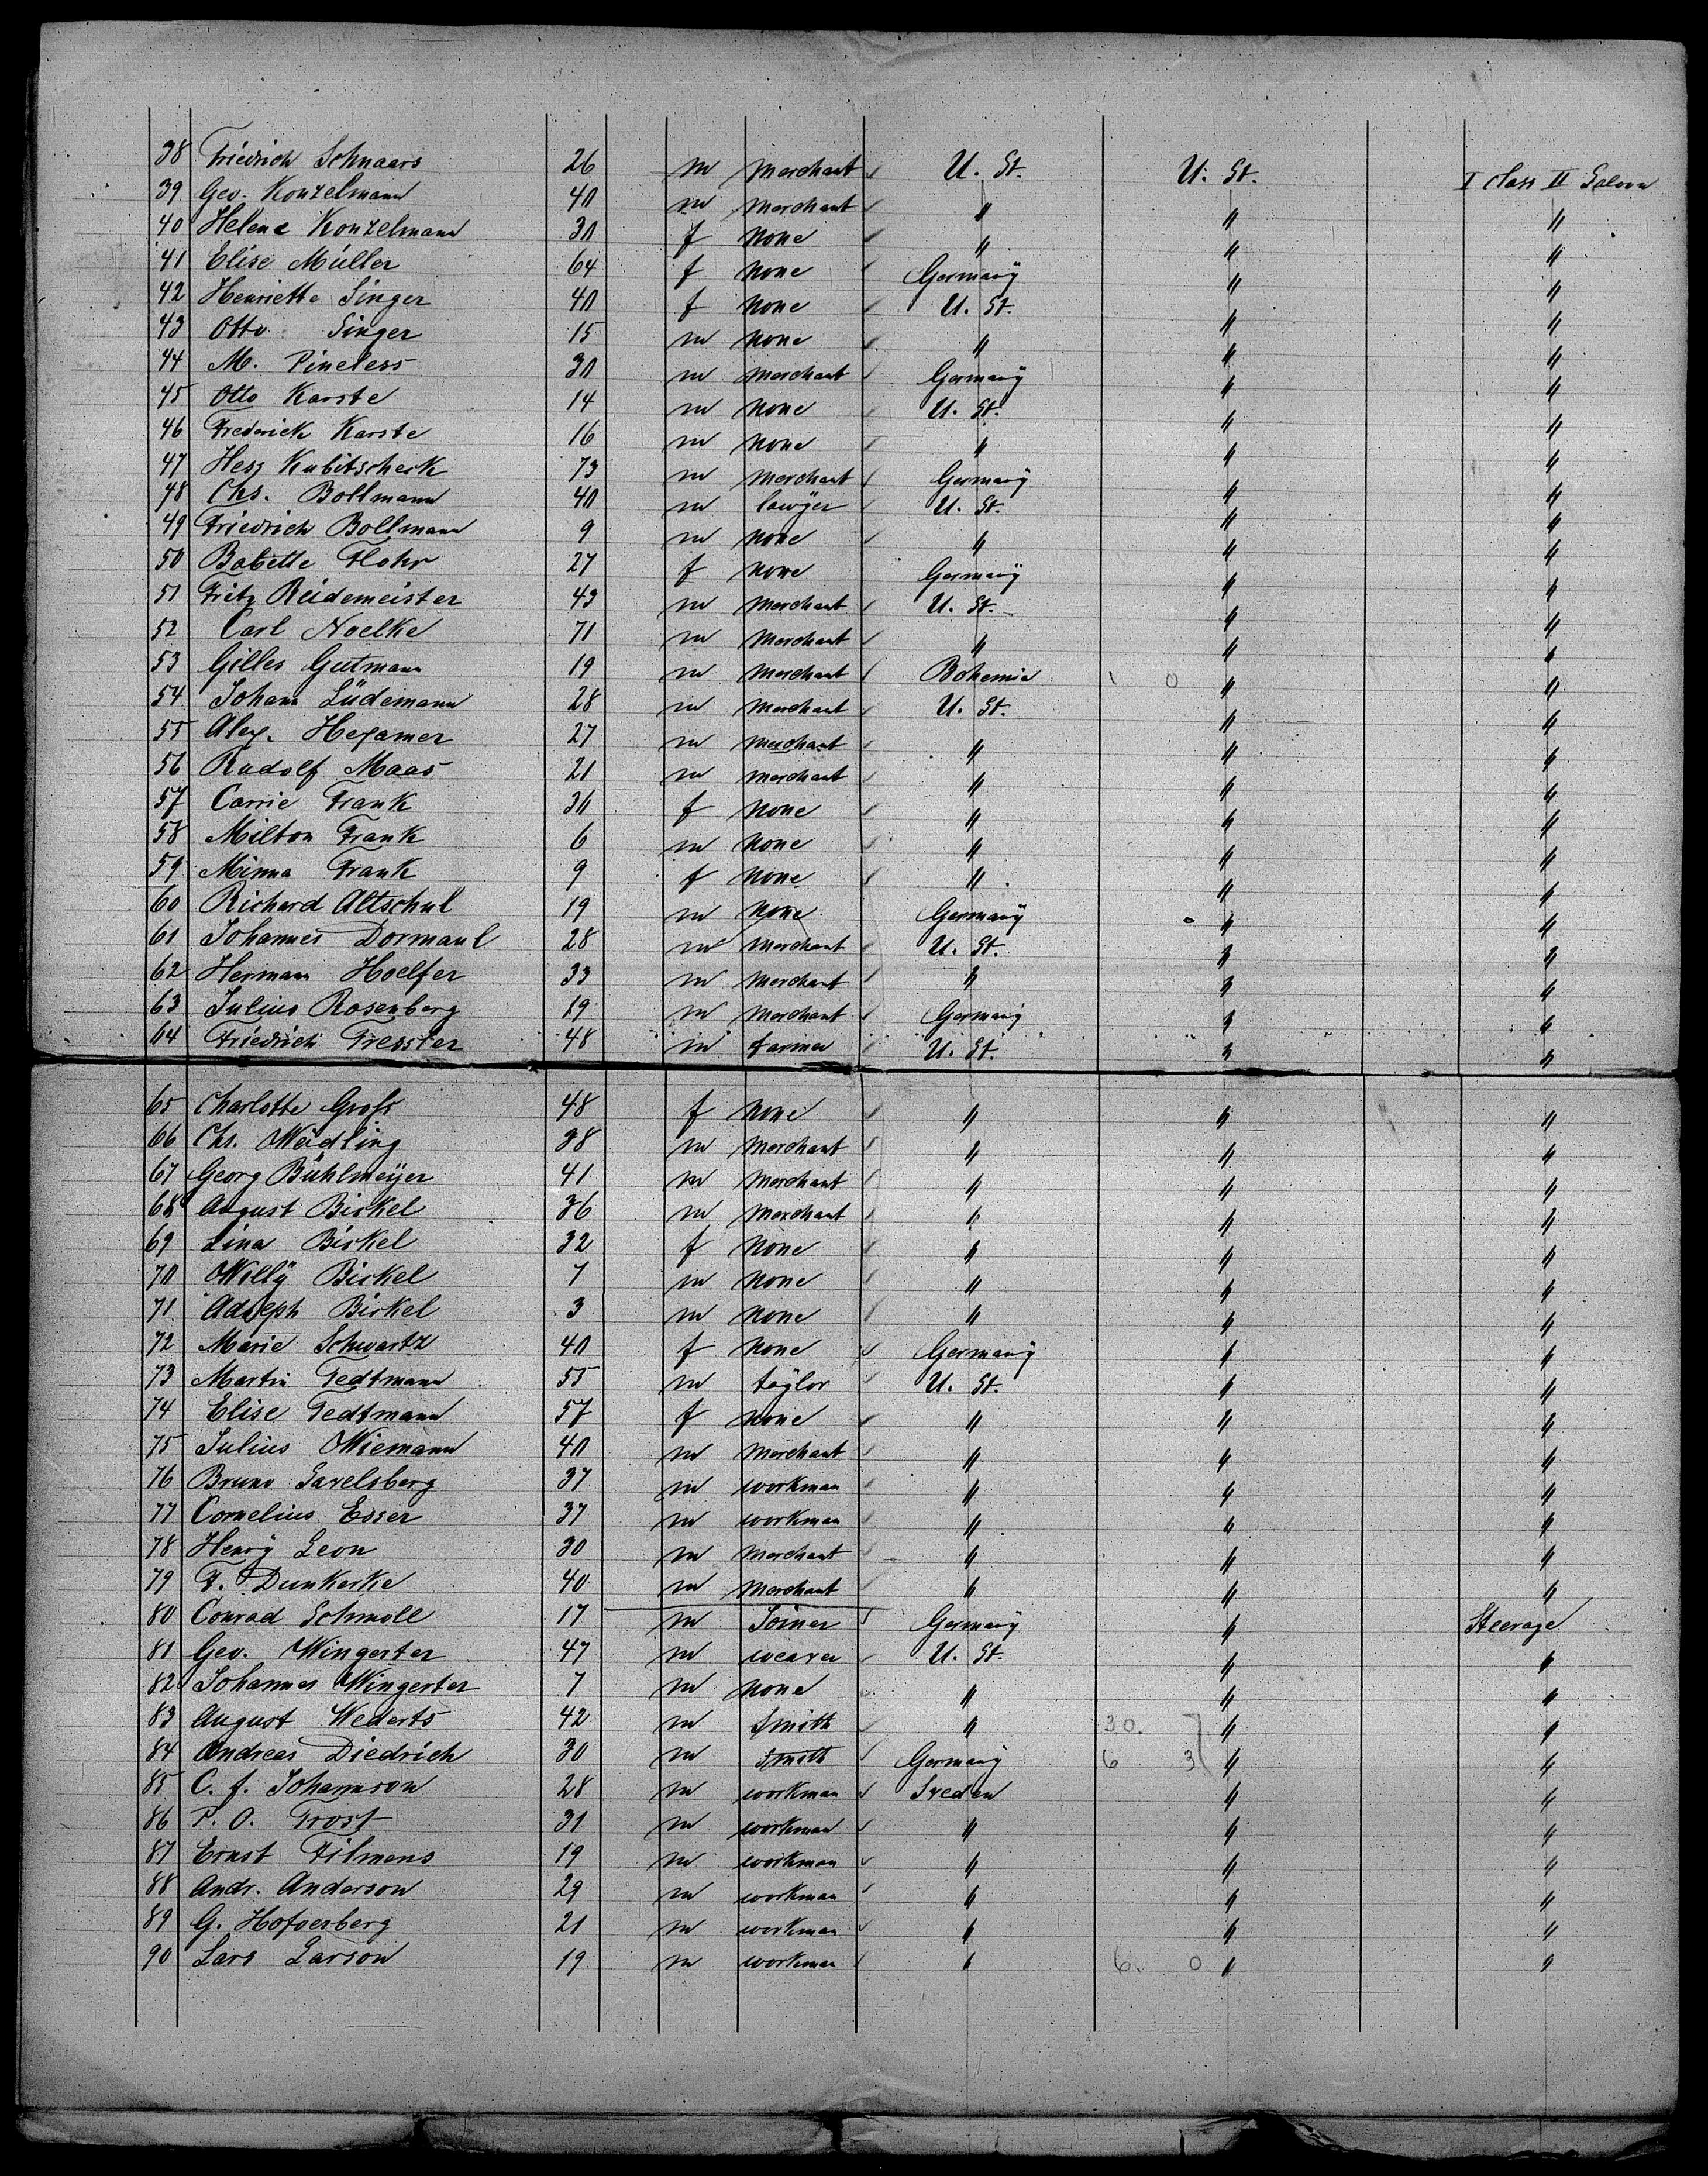 38 Friedrich Schnaars 26 m merchant U. St. U. St. I class II Saloon
39 Geo. Konzelmann 40 m merchant " " "
40 Helene Konzelmann 30 f none " " "
41 Elise Müller 64 f none Germany " "
42 Henriette Singer 40 f none U. St. " "
43 Otto Singer 15 m none " " "
44 M. Pineless 30 m merchant Germany " "
45 Otto Karste 14 m none U. St. " "
46 Frederick Karste 16 m none " " "
47 Hess Kubitscheck 73 m merchant Germany " "
48 Chs. Bollmann 40 m lawyer U. St. " "
49 Friedrich Bollmann 9 m none " " "
50 Babette Flohr 27 f none Germany " "
51 Fritz Reidemeister 43 m merchant U. St. " "
52 Carl Noelke 71 m merchant " " "
53 Gilles Gutmann 19 m merchant Bohemia 1 0 " "
54 Johann Lüdemann 28 m merchant U. St. " "
55 Alex. Hexamer 27 m merchant " " "
56 Rudolf Maas 21 m merchant " " "
57 Carrie Frank 30 f none " " "
58 Milton Frank 6 m none " " "
59 Minna Frank 9 f none " " "
60 Richard Altschul 19 m none Germany " "
61 Johannes Dormaul 28 m merchant U. St. " "
62 Hermann Hoelfer 33 m merchant " " "
63 Julius Rosenberg 19 m merchant Germany " "
64 Friedrich Tressler 48 m farmer U. St. " "
65 Charlotte Grofs 48 f none " " "
66 Chr. Weidling 38 m merchant " " "
67 Georg Bühlmeyer 41 m merchant " " "
68 August Birkel 36 m merchant " " "
69 Lina Birkel 32 f none " " "
70 Willy Birkel 7 m none " " "
71 Adolph Birkel 3 m none " " "
72 Marie Schwartz 40 f none Germany " "
73 Martin Tedtmann 55 m taylor U. St. " "
74 Elise Tedtmann 57 f none " " "
75 Julius Wiemann 40 m merchant " " "
76 Bruno Gavelsberg 37 m workman " " "
77 Cornelius Esser 37 m workman " " "
78 Henry Leon 30 m merchant " " "
79 F. Dunkerke 40 m merchant " " "
80 Conrad Schmoll 17 m Joiner Germany " Steerage
81 Geo. Wingerter 47 m weaver U. St. " "
82 Johannes Wingerter 7 m none " " "
83 August Wederts 42 m Smith " 30. " "
84 Andreas Diedrich 30 m Smith Germany 6 3 " "
85 C. J. Johannson 28 m workman Sveden " "
86 P. O. Trost 31 m workman " " "
87 Ernst Filmens 19 m workman " " "
88 Andr. Anderson 29 m workman " " "
89 G. Hofverberg 21 m workman " " "
90 Lars Larson 19 m workman " 6. 0 " "